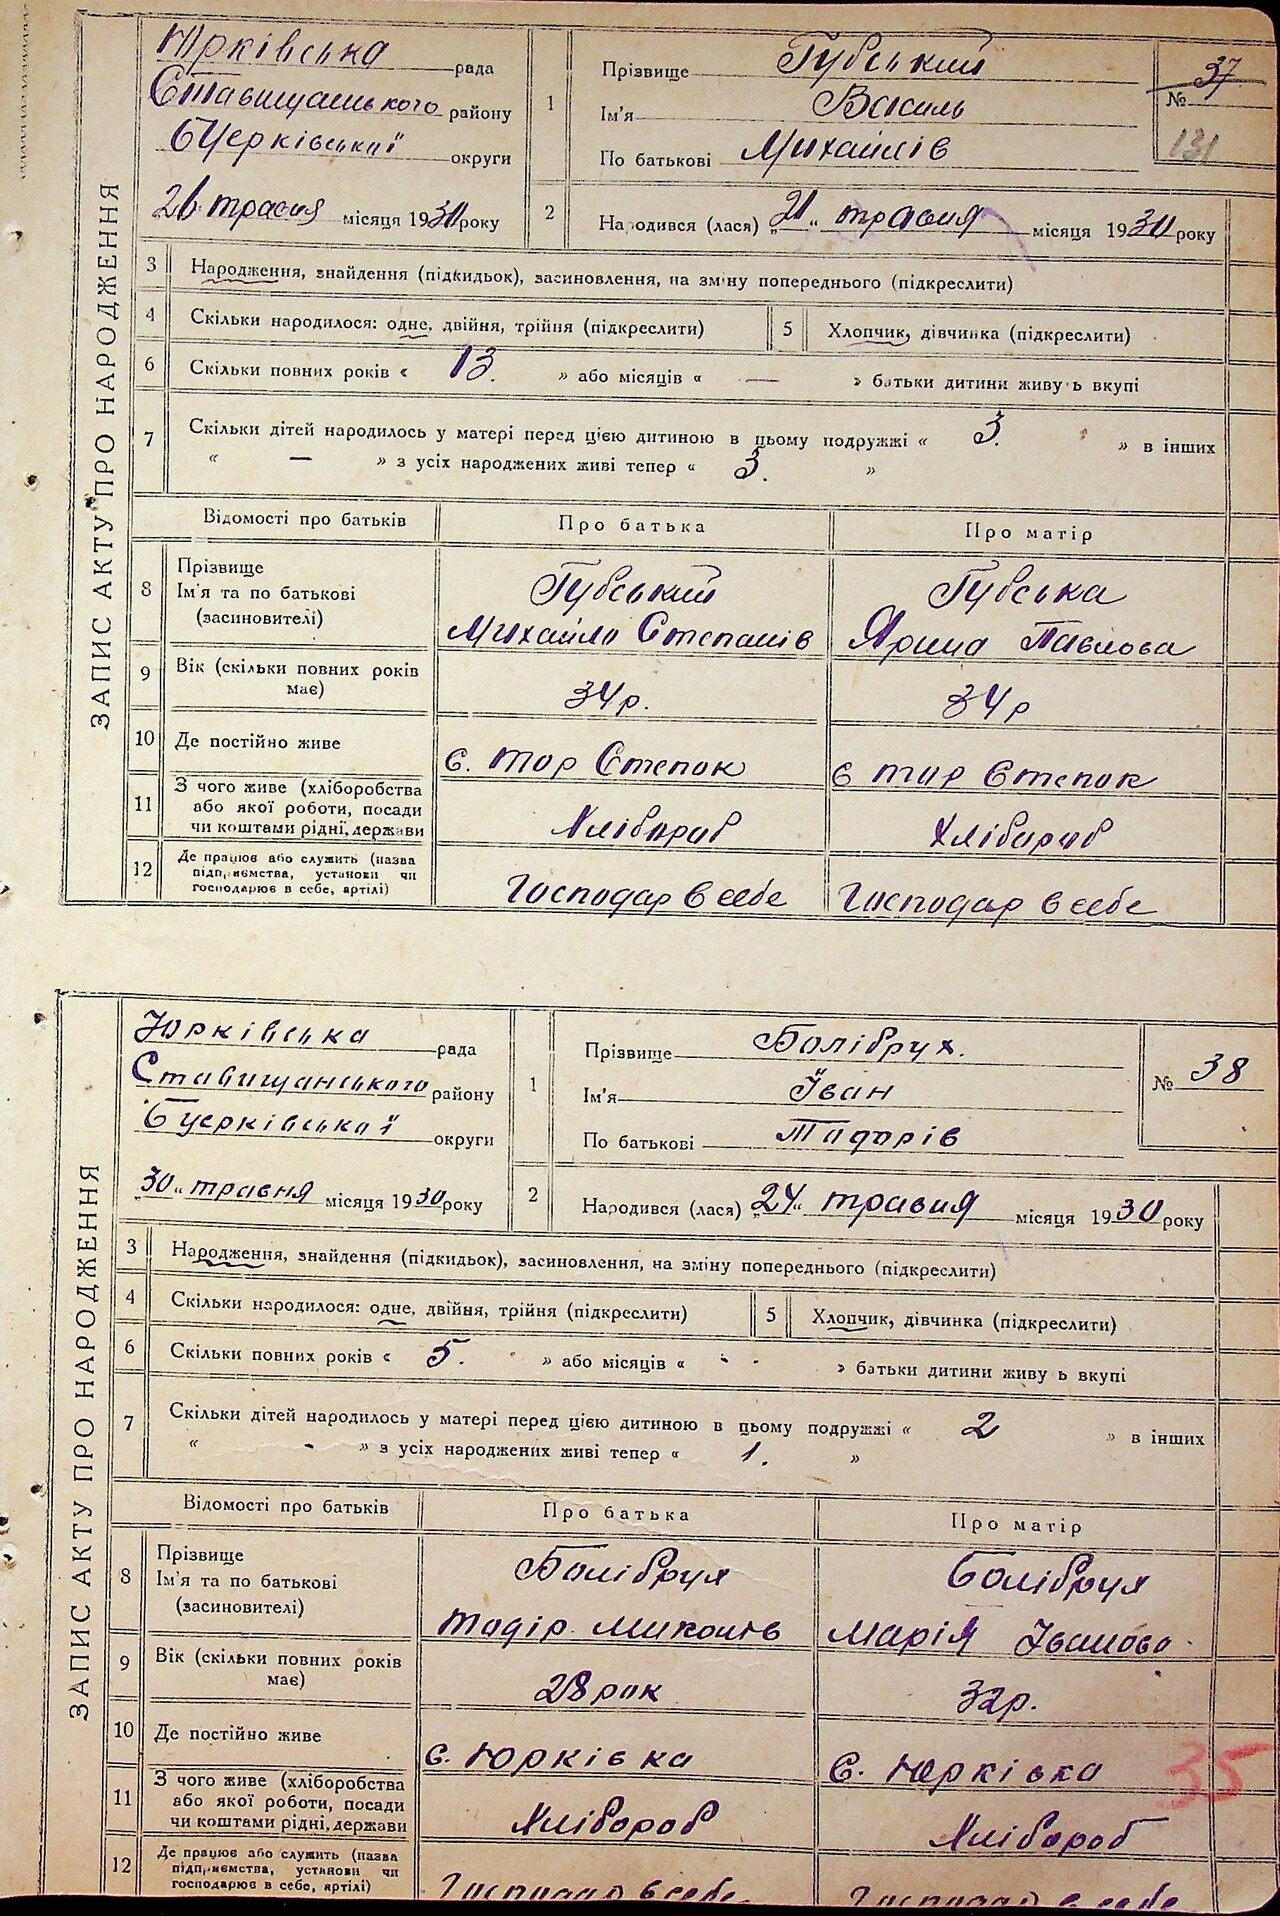 ЗАПИС АКТУ ПРО НАРОДЖЕННЯ
Юрківська рада
Ставищанського району
БЦерківської округи
26 травня місяця 1930 року
1
Прізвище Губський
Ім'я Василь
По батькові Михайлів
37
№
131
2
Народився (лася) „21“ травня місяця 1930 року
3 Народження, знайдення (підкидьок), засиновлення, на зміну попереднього (підкреслити)
4 Скільки народилося: одне, двійня, трійня (підкреслити) 5 Хлопчик, дівчинка (підкреслити)
6 Скільки повних років « 13. » або місяців « — » батьки дитини живуть вкупі
7 Скільки дітей народилось у матері перед цією дитиною в цьому подружжі « 3. » в інших
« — » з усіх народжених живі тепер « 3. »
Відомості про батьків Про батька Про матір
8 Прізвище
Ім'я та по батькові
(засиновителі)
Губський
Михайло Степанів
Губська
Ярина Павлова
9 Вік (скільки повних років має) 34р. 34р
10 Де постійно живе с. тор Степок с тор Степок
11 З чого живе (хліборобства
або якої роботи, посади
чи коштами рідні, держави
Хлібороб Хлібороб
12 Де працює або служить (назва
підприємства, установи чи
господарює в себе, артілі)
Господар в себе Господар в себе
ЗАПИС АКТУ ПРО НАРОДЖЕННЯ
Юрківська рада
Ставищанського району
БЦерківської округи
30 „ травня місяця 1930 року
1
Прізвище Болібрух.
Ім'я Іван
По батькові Тадорів
№ 38
2
Народився (лася) „24“ травня місяця 1930 року
3 Народження, знайдення (підкидьок), засиновлення, на зміну попереднього (підкреслити)
4 Скільки народилося: одне, двійня, трійня (підкреслити) 5 Хлопчик, дівчинка (підкреслити)
6 Скільки повних років « 5. » або місяців « - - » батьки дитини живуть вкупі
7 Скільки дітей народилось у матері перед цією дитиною в цьому подружжі « 2 » в інших
« - » з усіх народжених живі тепер « 1. »
Відомості про батьків Про батька Про матір
8 Прізвище
Ім'я та по батькові
(засиновителі)
Болібрух
Тадір Миколів
Болібрух
Марія Іванова
9 Вік (скільки повних років має) 28 рок 32р.
10 Де постійно живе с. Юрківка с. Юрківка
35
11 З чого живе (хліборобства
або якої роботи, посади
чи коштами рідні, держави
Хлібороб Хлібороб
12 Де працює або служить (назва
підприємства, установи чи
господарює в себе, артілі)
Господар в себе Господар в себе